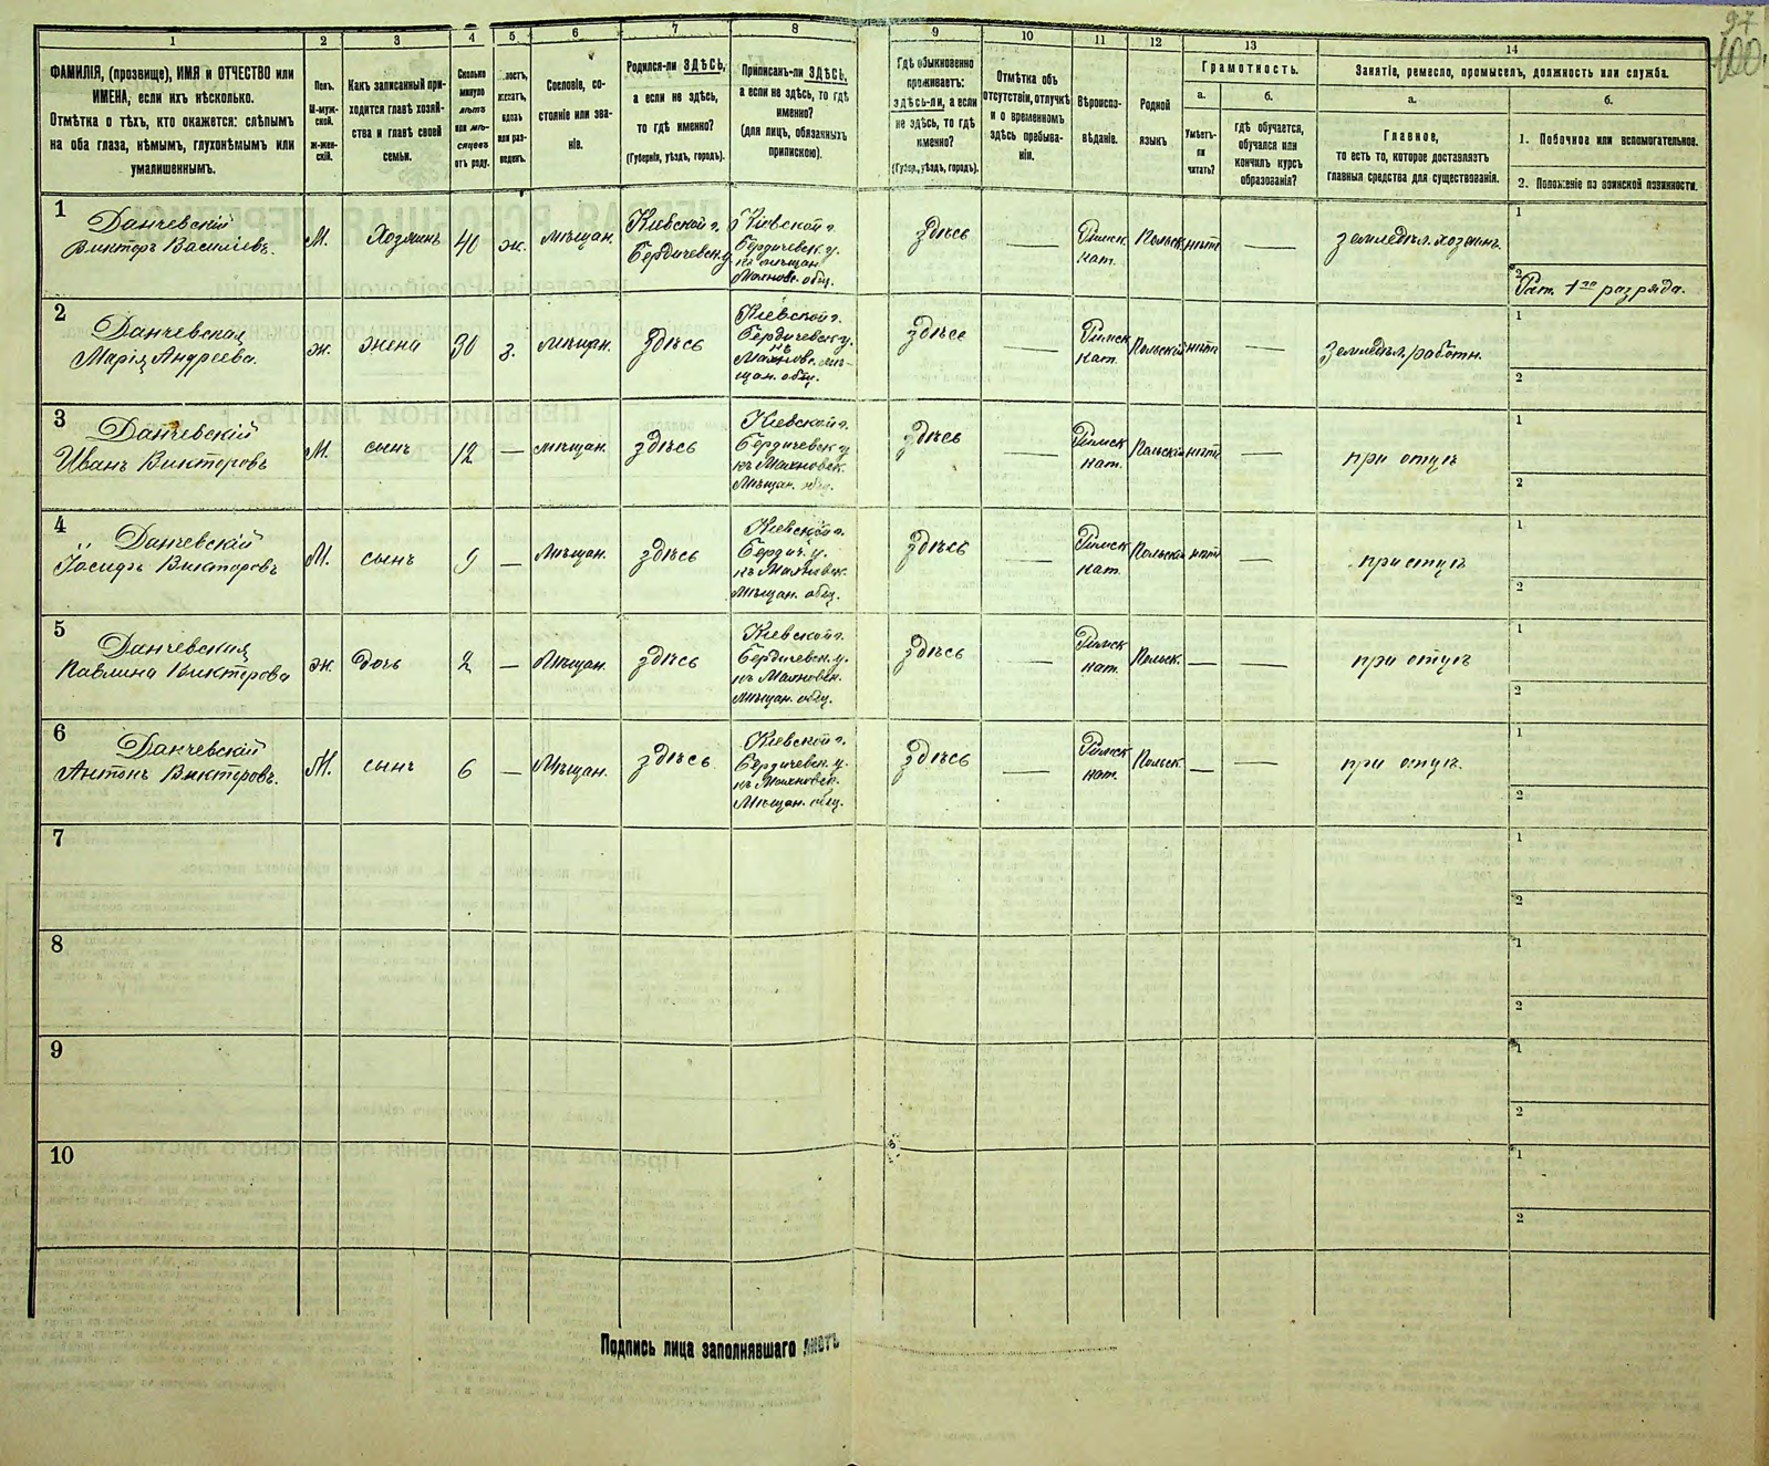 97
100
1
2
3
4
5
6
7
8
9
10
11
12
13
14
ФАМИЛІЯ, (прозвище), ИМЯ и ОТЧЕСТВО или
ИМЕНА, если ихъ нѣсколько.
Отмѣтка о тѣхъ, кто окажется: слѣпымъ
на оба глаза, нѣмымъ, глухонѣмымъ или
умалишеннымъ.
Полъ.
М-муж-
ской.
Ж-жен-
скій.
Какъ записанный при-
ходится главѣ хозяй-
ства и главѣ своей
семьи.
Сколько
минуло
лѣтъ
или мѣ-
сяцевъ
отъ роду.
лостъ,
женатъ,
вдовъ
или раз-
веденъ.
Сословіе, со-
стояніе или зва-
ніе.
Родился-ли ЗДѢСЬ,
а если не здѣсь,
то гдѣ именно?
(Губернія, уѣздъ, городъ).
Приписанъ-ли ЗДѢСЬ,
а если не здѣсь, то гдѣ
именно?
(для лицъ, обязанныхъ
припискою).
Гдѣ обыкновенно
проживаетъ:
здѣсь-ли, а если
не здѣсь, то гдѣ
именно?
(Губер., уѣздъ, городъ).
Отмѣтка объ
отсутствіи, отлучкѣ
и о временномъ
здѣсь пребыва-
ніи.
Вѣроиспо-
вѣданіе.
Родной
языкъ
Грамотность.
а.
Умѣетъ-
ли
читать?
б.
гдѣ обучается,
обучался или
кончилъ курсъ
образованія?
Занятіе, ремесло, промыселъ, должность или служба.
а.
Главное,
то есть то, которое доставляетъ
главныя средства для существованія.
б.
1. Побочное или вспомогательное.
2. Положеніе по воинской повинности.
1
Данчевскій
Викторъ Василіевъ.
М.
Хозяинъ
40
ж.
мѣщан.
Кіевской г.
Бердичевск. у.
Кіевской г.
Бердичевск. у.
къ мѣщан.
Махновс. общ.
здѣсь
Римск.
кат.
Польск
нѣтъ
земледѣл. хозяинъ
1
2
Рат. 1го разряда.
2
Данчевская
Марія Андреева.
ж.
жена
30
з.
мѣщан.
здѣсь
Кіевской г.
Бердичевск у.
къ
Махновс. мѣ-
щан. общ.
здѣсь
Римск
кат.
Польскій
нѣтъ
земледѣл. работн.
1
2
3
Данчевскій
Иванъ Викторовъ
М.
сынъ
12
—
мѣщан.
здѣсь
Кіевской г.
Бердичевск у.
къ Махновск.
Мѣщан. общ.
здѣсь
Римск
кат.
Польскій
нѣтъ
при отцѣ
1
2
4
Данчевскій
Іосифъ Викторовъ
М.
сынъ
9
—
Мѣщан.
здѣсь
Кіевской г.
Бердич. у.
къ Махновск.
Мѣщан. общ.
здѣсь
Римск
кат.
Польскій
нѣтъ
при отцѣ
1
2
5
Данчевская
Павлина Викторова
ж.
дочь
2
—
Мѣщан.
здѣсь
Кіевской г.
Бердичевск. у.
къ Махновск.
Мѣщан. общ.
здѣсь
Римск
кат.
Польск.
при отцѣ
1
2
6
Данчевскій
Антонъ Викторовъ.
М.
сынъ
6
—
Мѣщан.
здѣсь
Кіевской г.
Бердичевск. у.
къ Махновск.
Мѣщан. общ.
здѣсь
Римск
кат.
Польск.
при отцѣ.
1
2
7
1
2
8
1
2
9
1
2
10
1
2
Подпись лица заполнявшаго листъ